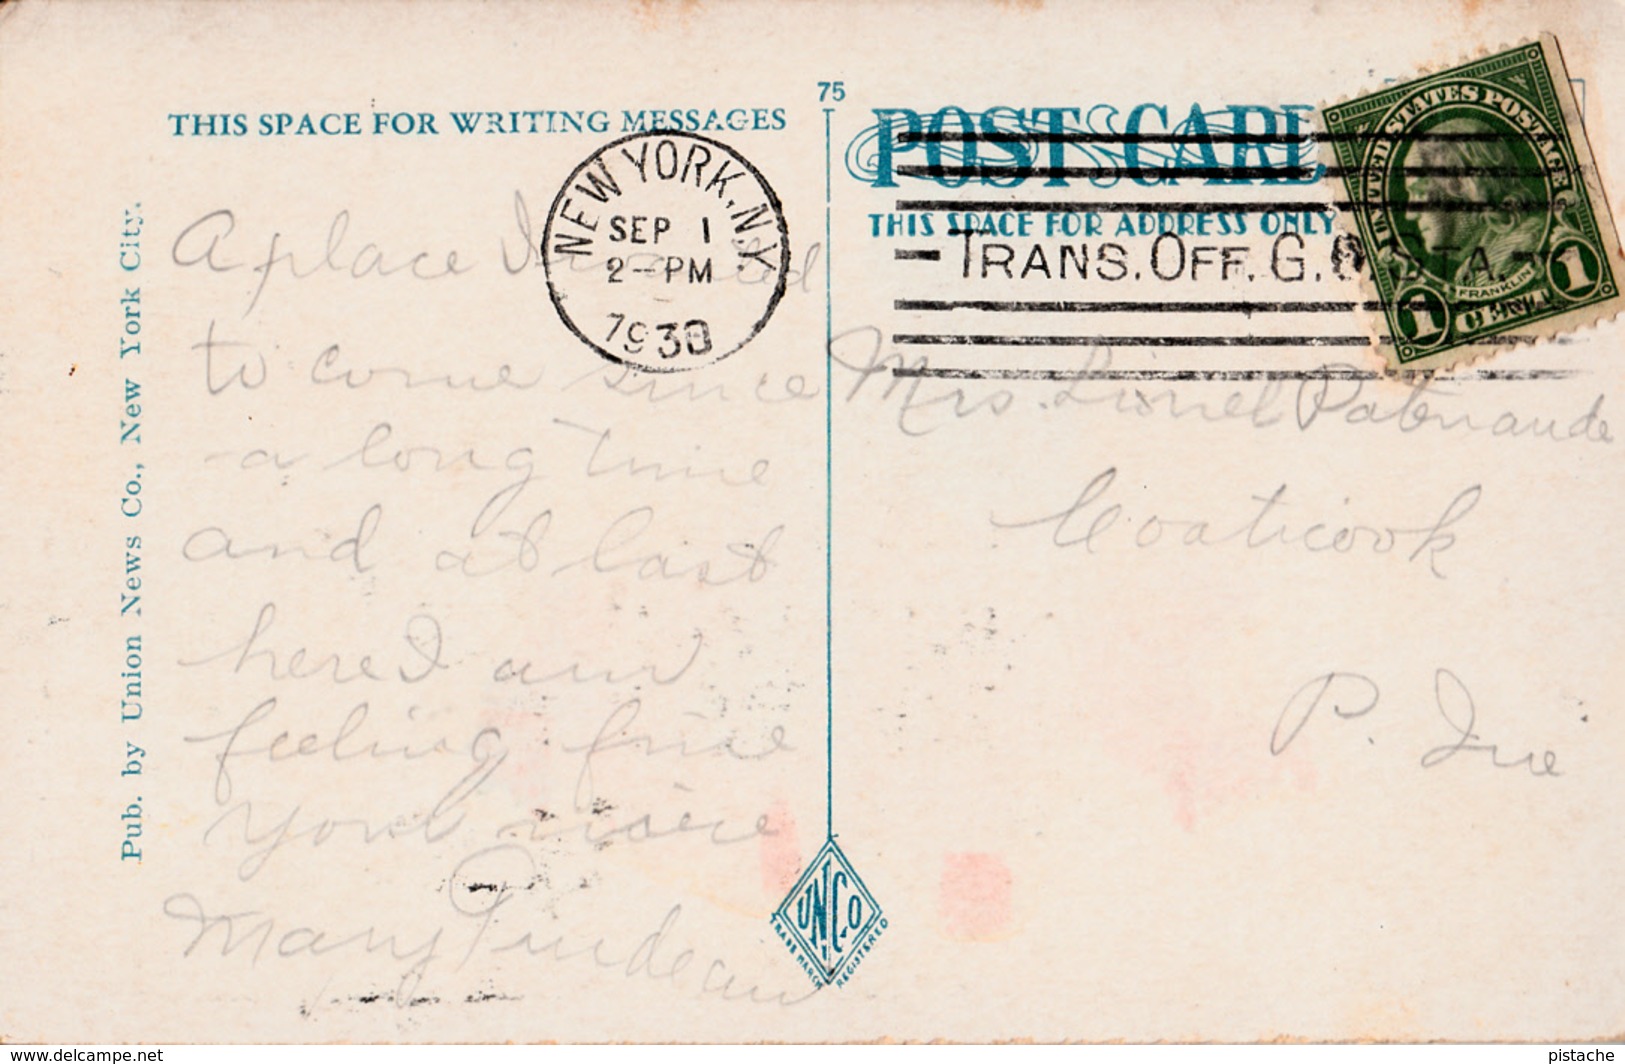 75
THIS SPACE FOR WRITING MESSAGES
POST CARD
THIS SPACE FOR ADDRESS ONLY
NEW YORK, N.Y.
SEP 1
2-PM
1930
TRANS. OFF. G. STA.
UNITED STATES POSTAGE
FRANKLIN
1 CENT 1
A place I
to come since
a long time
and at last
here I am
feeling fine
your niece
Mary
Mrs. Lionel Patenaude
Coaticook
P. Que
Pub. by Union News Co., New York City.
UN.CO
TRADE MARK REGISTERED
www.delcampe.net
pistache